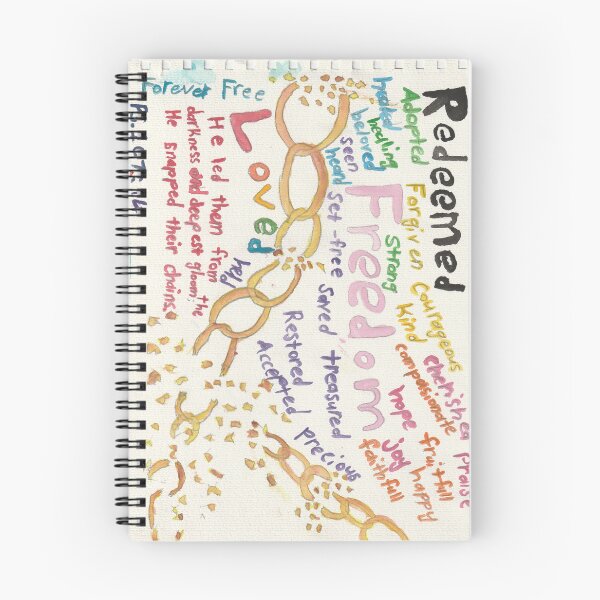 Forever Free
Loved
He led them from
darkness and deepest gloom: the
He snapped their chains.
Redeemed
Adopted Forgiven Courageous cherished praise
healed healing Strong Kind compassionate fruitfull
beloved Freedom hope joy happy
seen faithfull
heard set-free saved treasured
Restored precious
Accepted